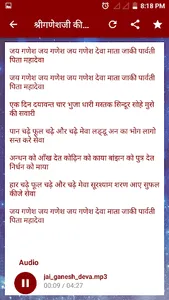 8:18 PM
श्रीगणेशजी की...
जय गणेश जय गणेश जय गणेश देवा माता जाकी पार्वती
पिता महादेवा
जय गणेश जय गणेश जय गणेश देवा माता जाकी पार्वती
पिता महादेवा
एक दिन दयावन्त चार भुजा धारी मस्तक सिन्दूर सोहे मुसे
की सवारी
पान चढ़े फूल चढ़े और चढ़े मेवा लड्डू अन का भोग लागो
सन्त करे सेवा
अन्धन को आँख देत कोढ़िन को काया बांझन को पुत्र देत
निर्धन को माया
हार चढ़े फूल चढ़े और चढ़े मेवा सूरश्याम शरण आए सुफल
कीजे सेवा
जय गणेश जय गणेश जय गणेश देवा माता जाकी पार्वती
पिता महादेवा
Audio
jai_ganesh_deva.mp3
00:09 / 04:27